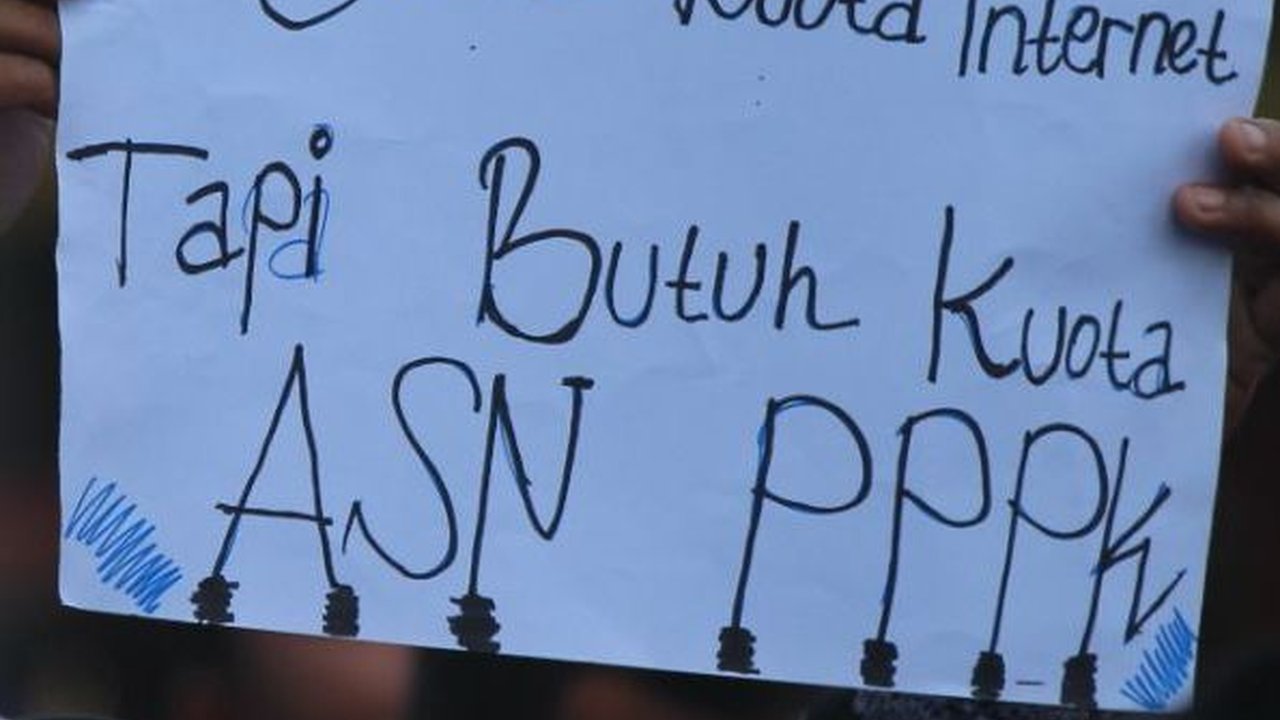 Kuota Internet
Tapi Butuh Kuota
ASN PPPK